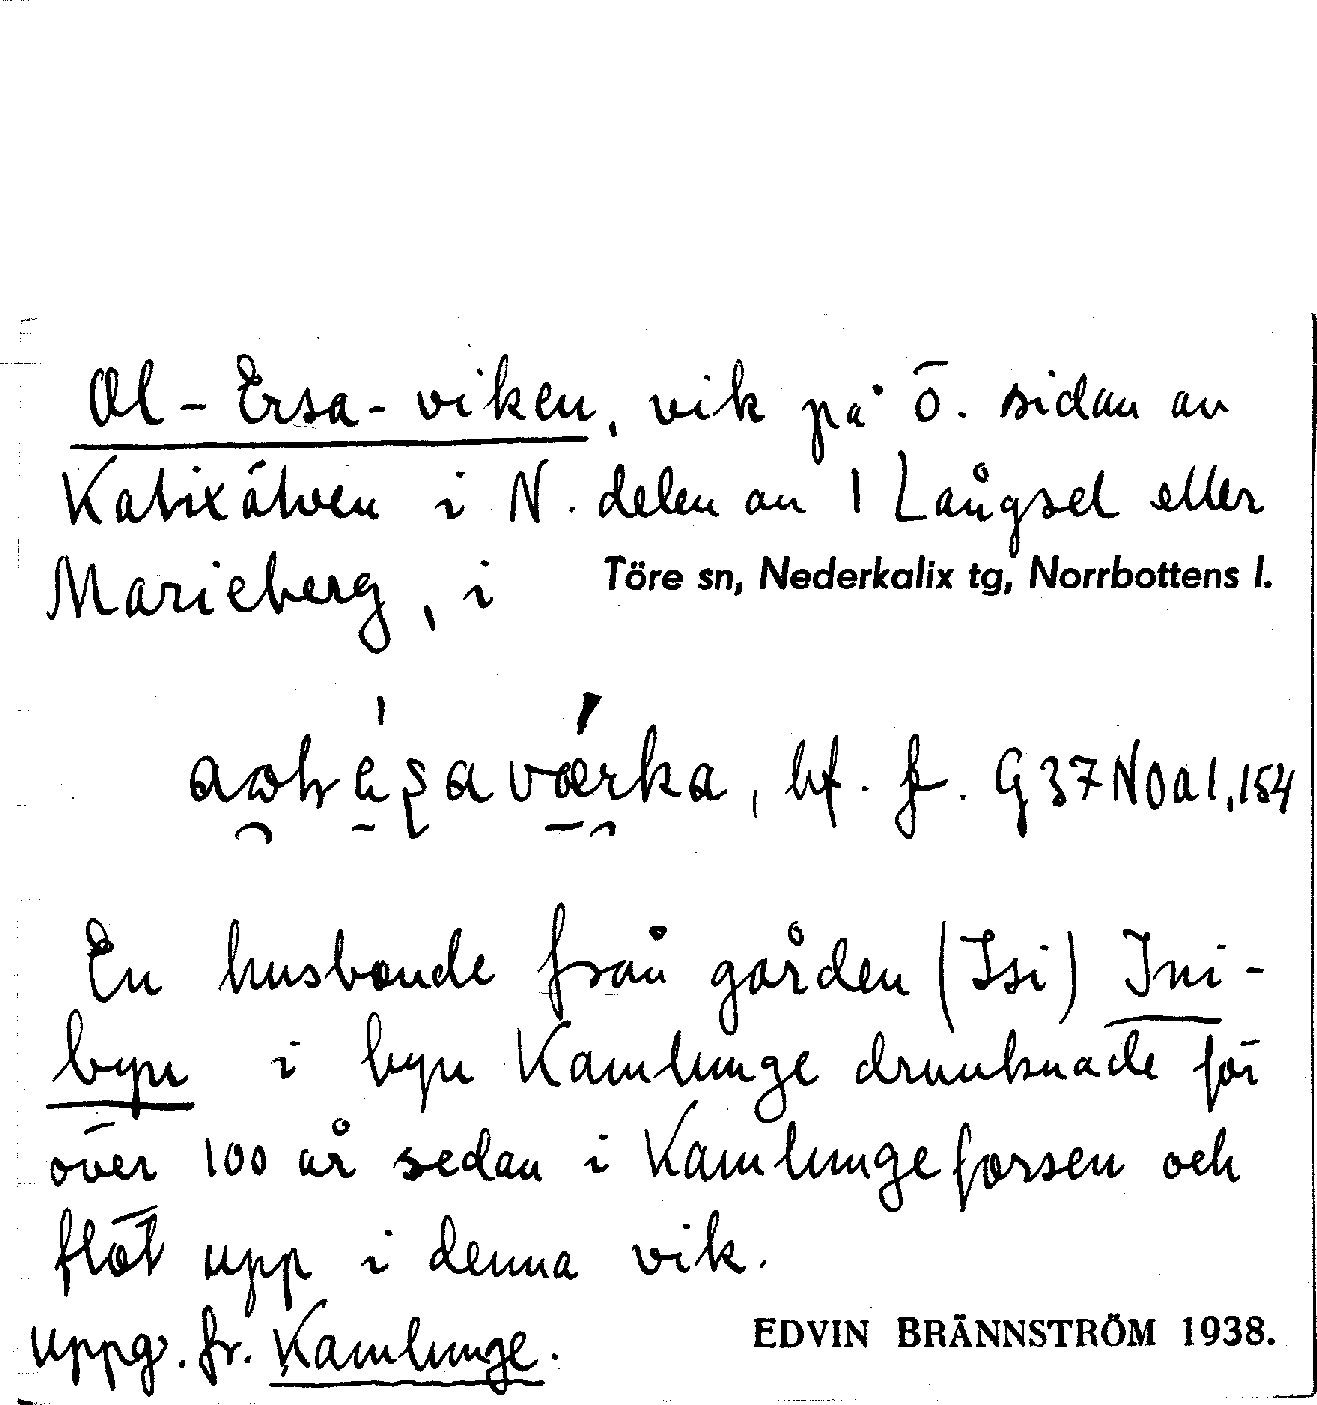 Ol-Ersa-viken, vik på ö. sidan av
Kalixälven i N. delen av 1 Långsel eller
Marieberg, i Töre sn, Nederkalix tg, Norrbottens l.
bf. f. G37NOa1,154
En husbonde från gården (Isi) Ini-
byn i byn Kamlunge drunknade för
över 100 år sedan i Kamlungeforsen och
flöt upp i denna vik.
uppg. fr. Kamlunge. EDVIN BRÄNNSTRÖM 1938.